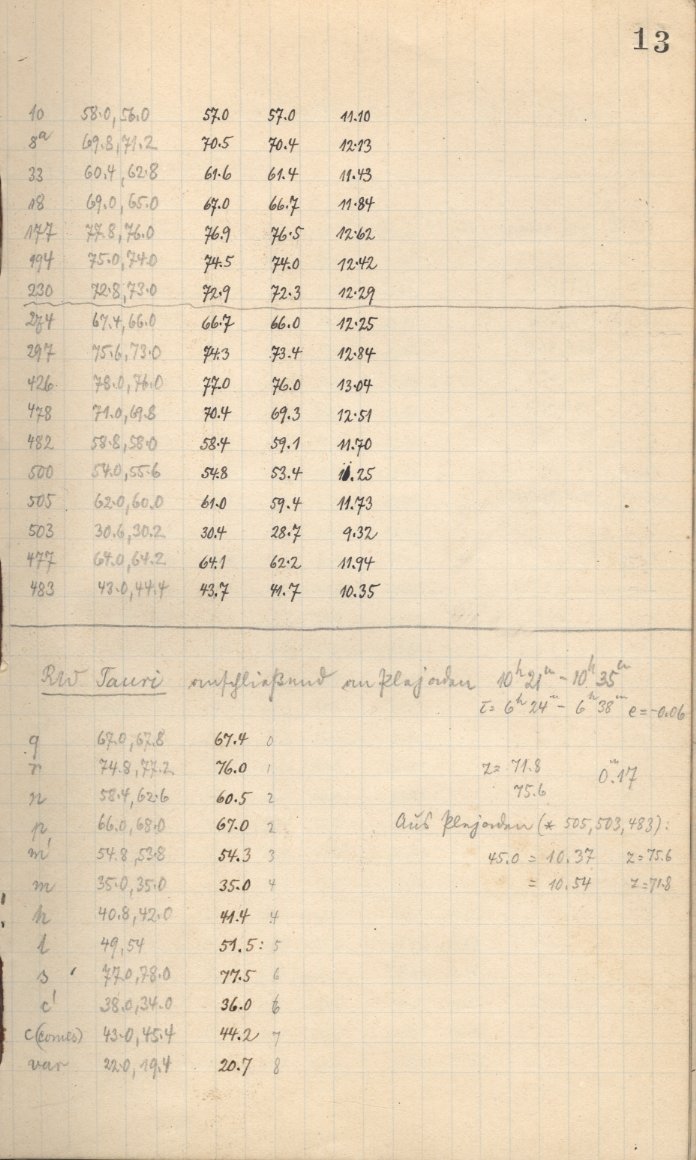 13
10 58.0, 56.0 57.0 57.0 11.10
8a 69.8, 71.2 70.5 70.4 12.13
33 60.4, 62.8 61.6 61.4 11.43
18 69.0, 65.0 67.0 66.7 11.84
177 77.8, 76.0 76.9 76.5 12.62
194 75.0, 74.0 74.5 74.0 12.42
230 72.8, 73.0 72.9 72.3 12.29
274 67.4, 66.0 66.7 66.0 12.25
297 75.6, 73.0 74.3 73.4 12.84
426 78.0, 76.0 77.0 76.0 13.04
478 71.0, 69.8 70.4 69.3 12.51
482 58.8, 58.0 58.4 59.1 11.70
500 54.0, 55.6 54.8 53.4 11.25
505 62.0, 60.0 61.0 59.4 11.73
503 30.6, 30.2 30.4 28.7 9.32
477 64.0, 64.2 64.1 62.2 11.94
483 43.0, 44.4 43.7 41.7 10.35
RW Tauri anschließend an Plejaden 10h 21m - 10h 35m
τ = 6h 24m - 6h 38m e = -0.06
q 67.0, 67.8 67.4 0
r 74.8, 77.2 76.0 1
z = 71.8 0m.17
75.6
n 58.4, 62.6 60.5 2
p 66.0, 68.0 67.0 2
Aus Plejaden (* 505, 503, 483):
m' 54.8, 53.8 54.3 3
45.0 = 10.37 z = 75.6
m 35.0, 35.0 35.0 4
= 10.54 z = 71.8
h 40.8, 42.0 41.4 4
l 49, 54 51.5: 5
s 77.0, 78.0 77.5 6
c' 38.0, 34.0 36.0 6
c (comes) 43.0, 45.4 44.2 7
var 22.0, 19.4 20.7 8